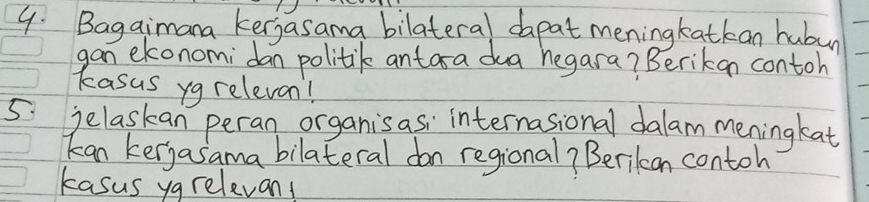 4. Bagaimana kerjasama bilateral dapat meningkatkan hubun
gan ekonomi dan politik antara dua negara? Berikan contoh
kasus yg relevan!
5. jelaskan peran organisasi internasional dalam meningkat
kan kerjasama bilateral dan regional? Berikan contoh
kasus yg relevan!